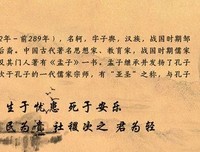 2年－前289年），名轲，字子舆，汉族，战国时期邹
后裔。中国古代著名思想家、教育家，战国时期儒家
及其门人著有《孟子》一书。孟子继承并发扬了孔子
次于孔子的一代儒家宗师，有“亚圣”之称，与孔子
生于忧患 死于安乐
民为贵 社稷次之 君为轻